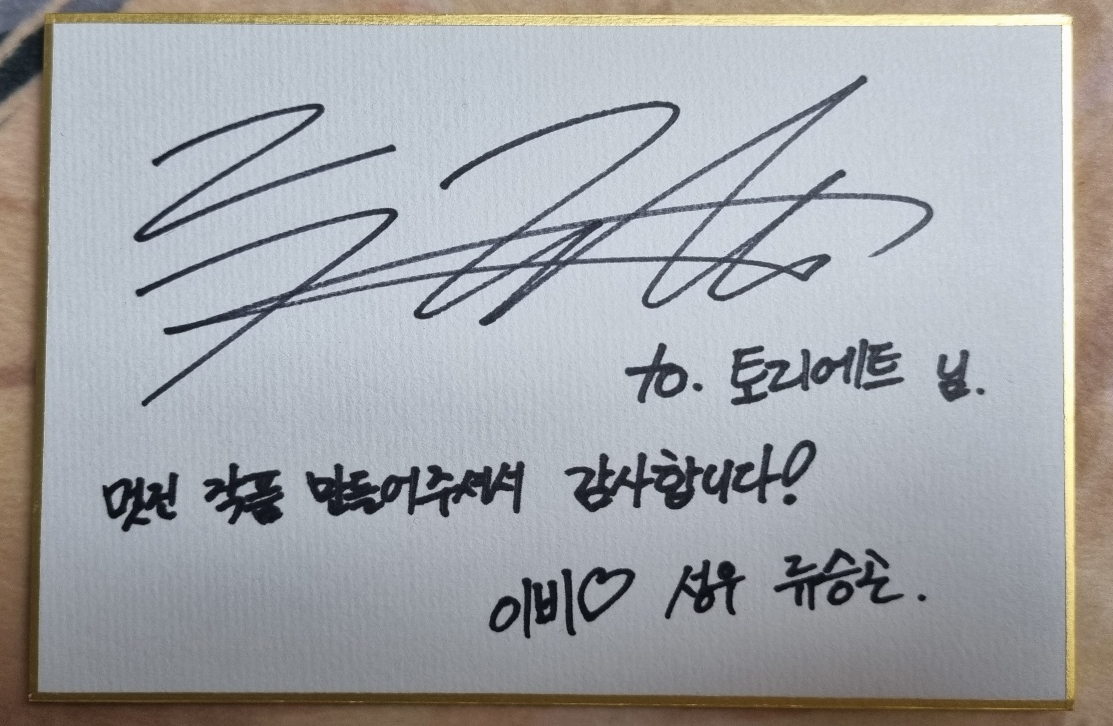 to. 토리에트 님.
멋진 작품 만들어주셔서 감사합니다!
이비♡ 성우 류승곤.